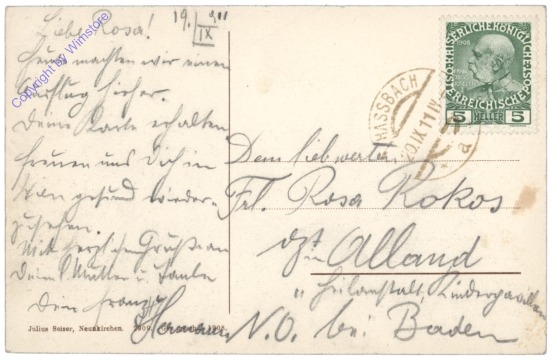 19. IX 911
Liebe Rosa!
Heute machten wir einen
Ausflug hieher.
Deine Karte erhalten,
freuen uns Dich in
gesund wieder-
zusehen.
Mit herzlichen Grüßen an
Deine Mutter u. Tante
Dein Franz
Hermann
Julius Seiser, Neunkirchen. 1909.
Copyright by Wimstore
KAISERLICHE KÖNIGLICHE
ÖSTERREICHISCHE POST
1908
5 HELLER 5
HASSBACH
20.IX.11
a
Dem lieb werten
Frl. Rosa Kokos
dzt in Alland
Heilanstalt, Kinderpavillon
N.Ö. bei Baden